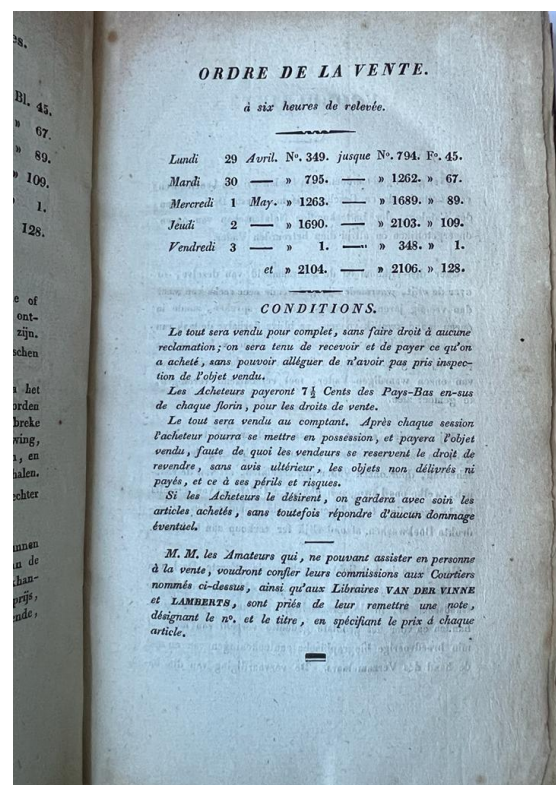 es.
Bl. 45.
» 67.
» 89.
» 109.
1.
128.
e of
ont-
zijn.
schen
het
orden
breke
ving,
, en
halen.
echter
nnen
de
han-
prijs,
ende,
ORDRE DE LA VENTE.
à six heures de relevée.
Lundi 29 Avril. Nº. 349. jusque Nº. 794. Fº. 45.
Mardi 30 — » 795. — » 1262. » 67.
Mercredi 1 May. » 1263. — » 1689. » 89.
Jeudi 2 — » 1690. — » 2103. » 109.
Vendredi 3 — » 1. — » 348. » 1.
et » 2104. — » 2106. » 128.
CONDITIONS.
Le tout sera vendu pour complet, sans faire droit à aucune
reclamation; on sera tenu de recevoir et de payer ce qu'on
a acheté, sans pouvoir alléguer de n'avoir pas pris inspec-
tion de l'objet vendu.
Les Acheteurs payeront 7½ Cents des Pays-Bas en-sus
de chaque florin, pour les droits de vente.
Le tout sera vendu au comptant. Après chaque session
l'acheteur pourra se mettre en possession, et payera l'objet
vendu, faute de quoi les vendeurs se reservent le droit de
revendre, sans avis ultérieur, les objets non délivrés ni
payés, et ce à ses périls et risques.
Si les Acheteurs le désirent, on gardera avec soin les
articles achetés, sans toutefois répondre d'aucun dommage
éventuel.
M. M. les Amateurs qui, ne pouvant assister en personne
à la vente, voudront confier leurs commissions aux Courtiers
nommés ci-dessus, ainsi qu'aux Libraires VAN DER VINNE
et LAMBERTS, sont priés de leur remettre une note,
désignant le nº. et le titre, en spécifiant le prix á chaque
article.